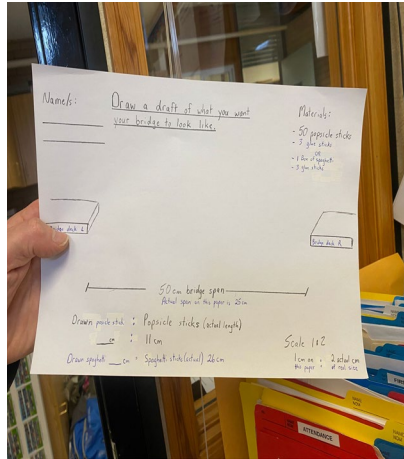 Name/s:
Draw a draft of what you want
your bridge to look like.
Materials:
- 50 popsicle sticks
- 3 glue sticks
OR
- 3 glue sticks
Bridge deck L
Bridge deck R
50 cm bridge span
Actual span on this paper is 25cm
Drawn popsicle stick : Popsicle sticks (actual length)
___ cm : 11 cm
Drawn spaghetti ___ cm : Spaghetti sticks (actual) 26 cm
Scale 1:2
1 cm on = 2 actual cm
this paper at real size
ATTENDANCE
FIRS